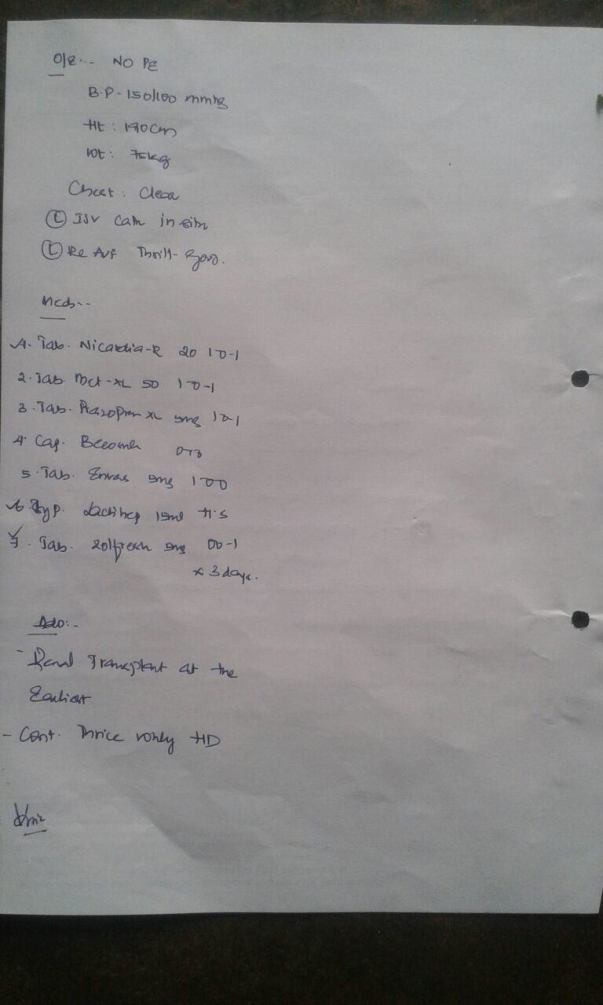 O/E:- NO PE
B.P - 150/100 mmHg
Ht : 190cm
Wt : 75kg
Chest : Clear
(L) IJV Cath in situ
(L) AVF Thrill - Good.
Meds:-
1. Tab. Nicardia-R 20 1-0-1
2. Tab. Met-XL 50 1-0-1
3. Tab. Prazopress XL 5mg 1-0-1
4. Cap. 
5. Tab. 5mg 1-0-0
6. Syp. Lactihep 15ml H.S
7. Tab. Zolfresh 5mg 00-1
x 3 days.
Adv:-
- Renal Transplant at the
Earliest
- Cont. Thrice wkly HD